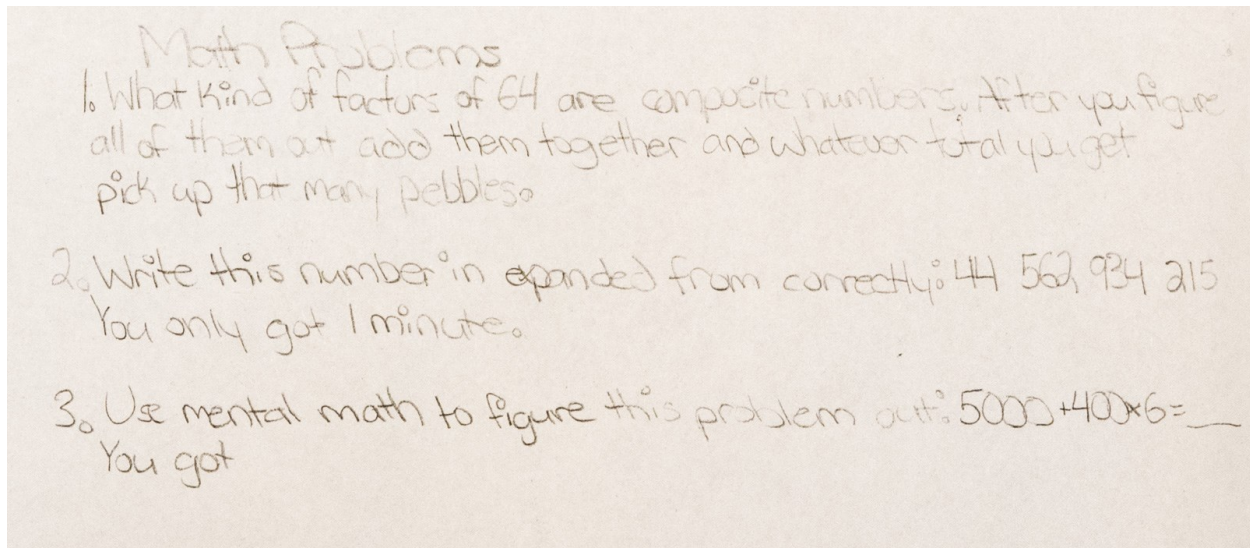 Math Problems
1. What kind of factors of 64 are composite numbers. After you figure
all of them out add them together and whatever total you get
pick up that many pebbles.
2. Write this number in expanded from correctly: 44 562 934 215
You only got 1 minute.
3. Use mental math to figure this problem out: 5000+400×6=__
You got